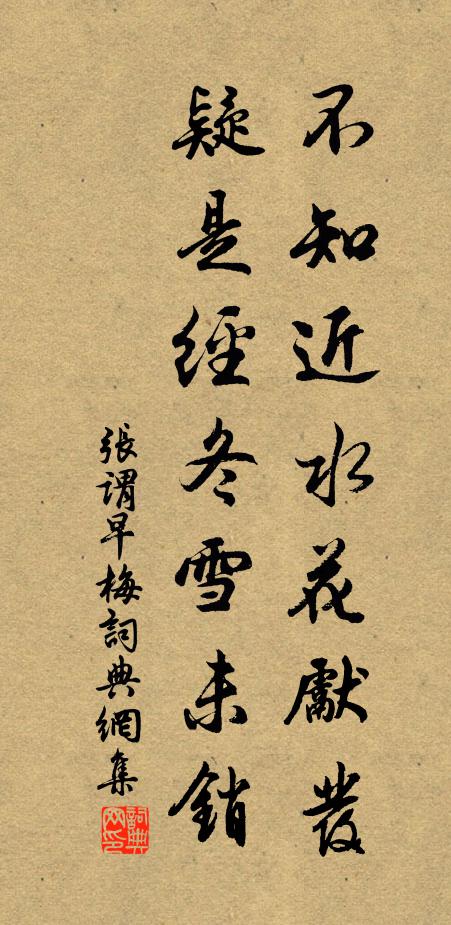 不知近水花獻發
疑是經冬雪未銷
張謂早梅詞典網集
詞典
网印